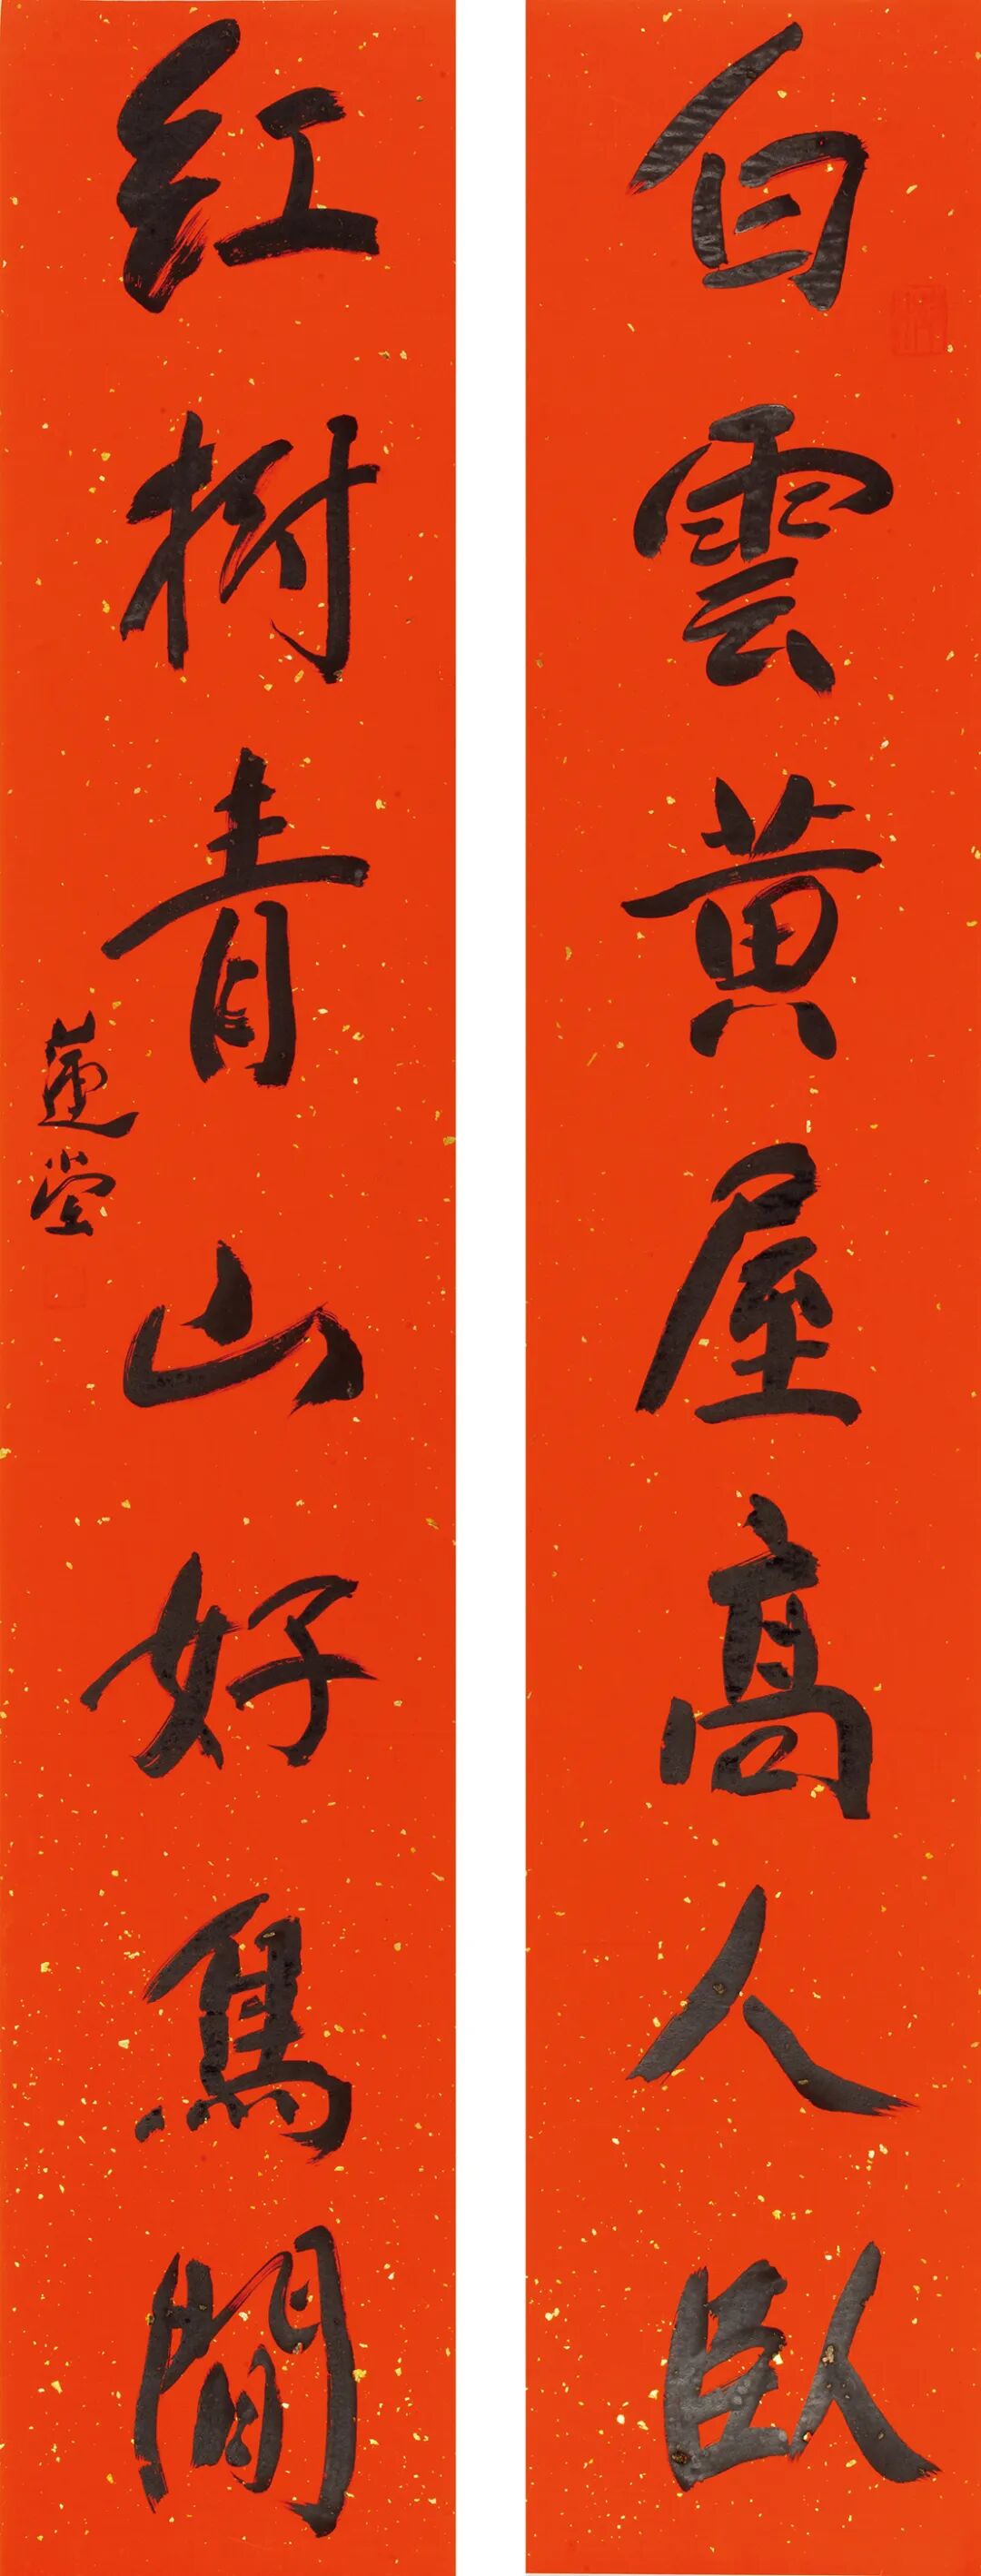 白雲黄屋高人臥
紅樹青山好鳥閒
蓮堂